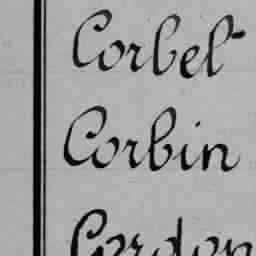 Corbel
Corbin
Cordon